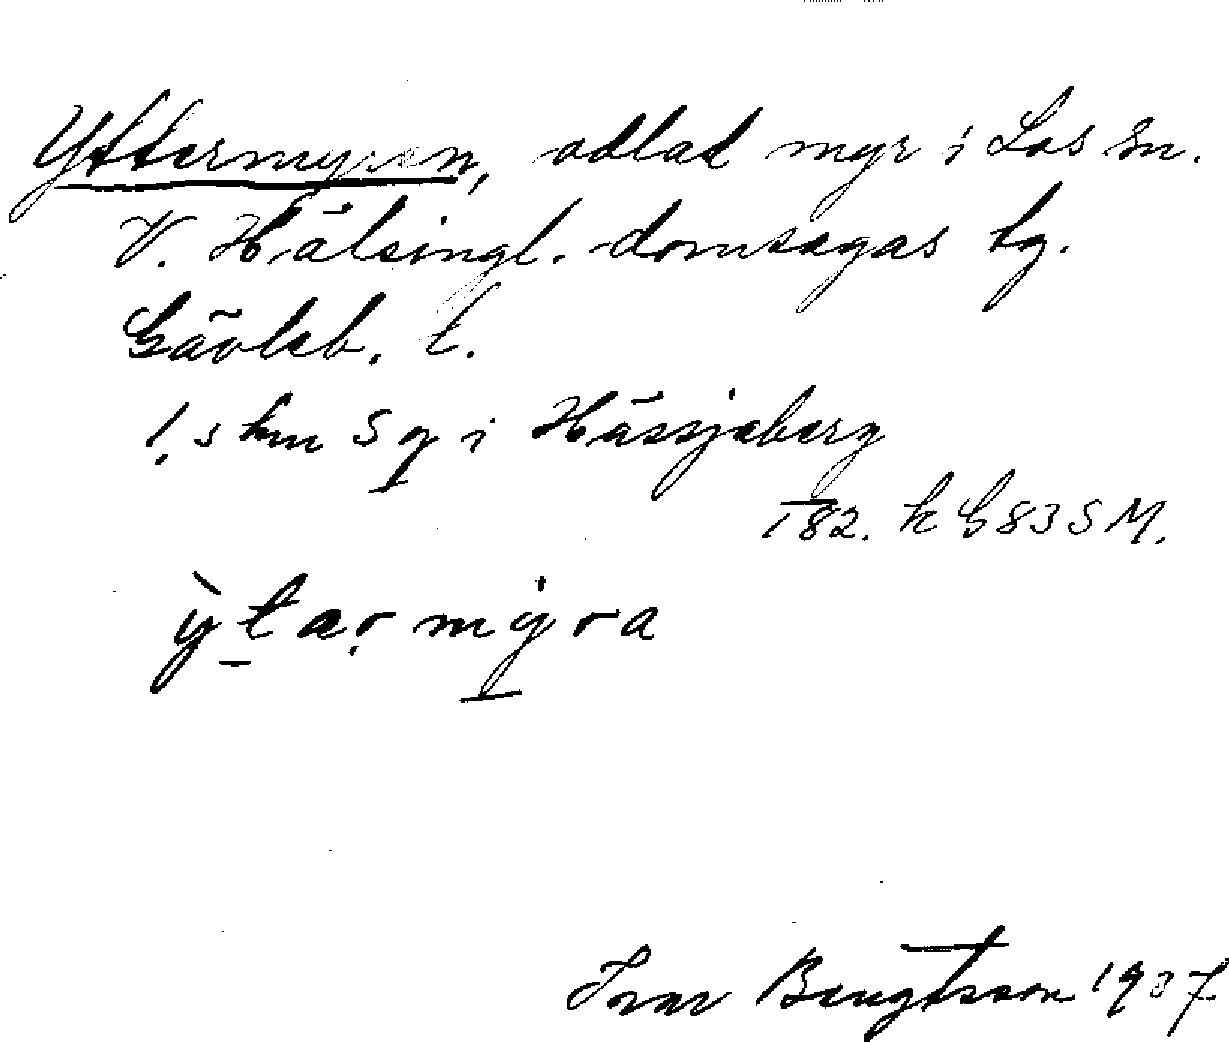 Yttermyren, odlad myr i Los sn.
V. Hälsingl. domsagas tg.
Gävleb. l.
1,5 km S g i Hässjeberg
182. k G 83 S M.
ỳtarmýra
Ivar Bengtsson 1937